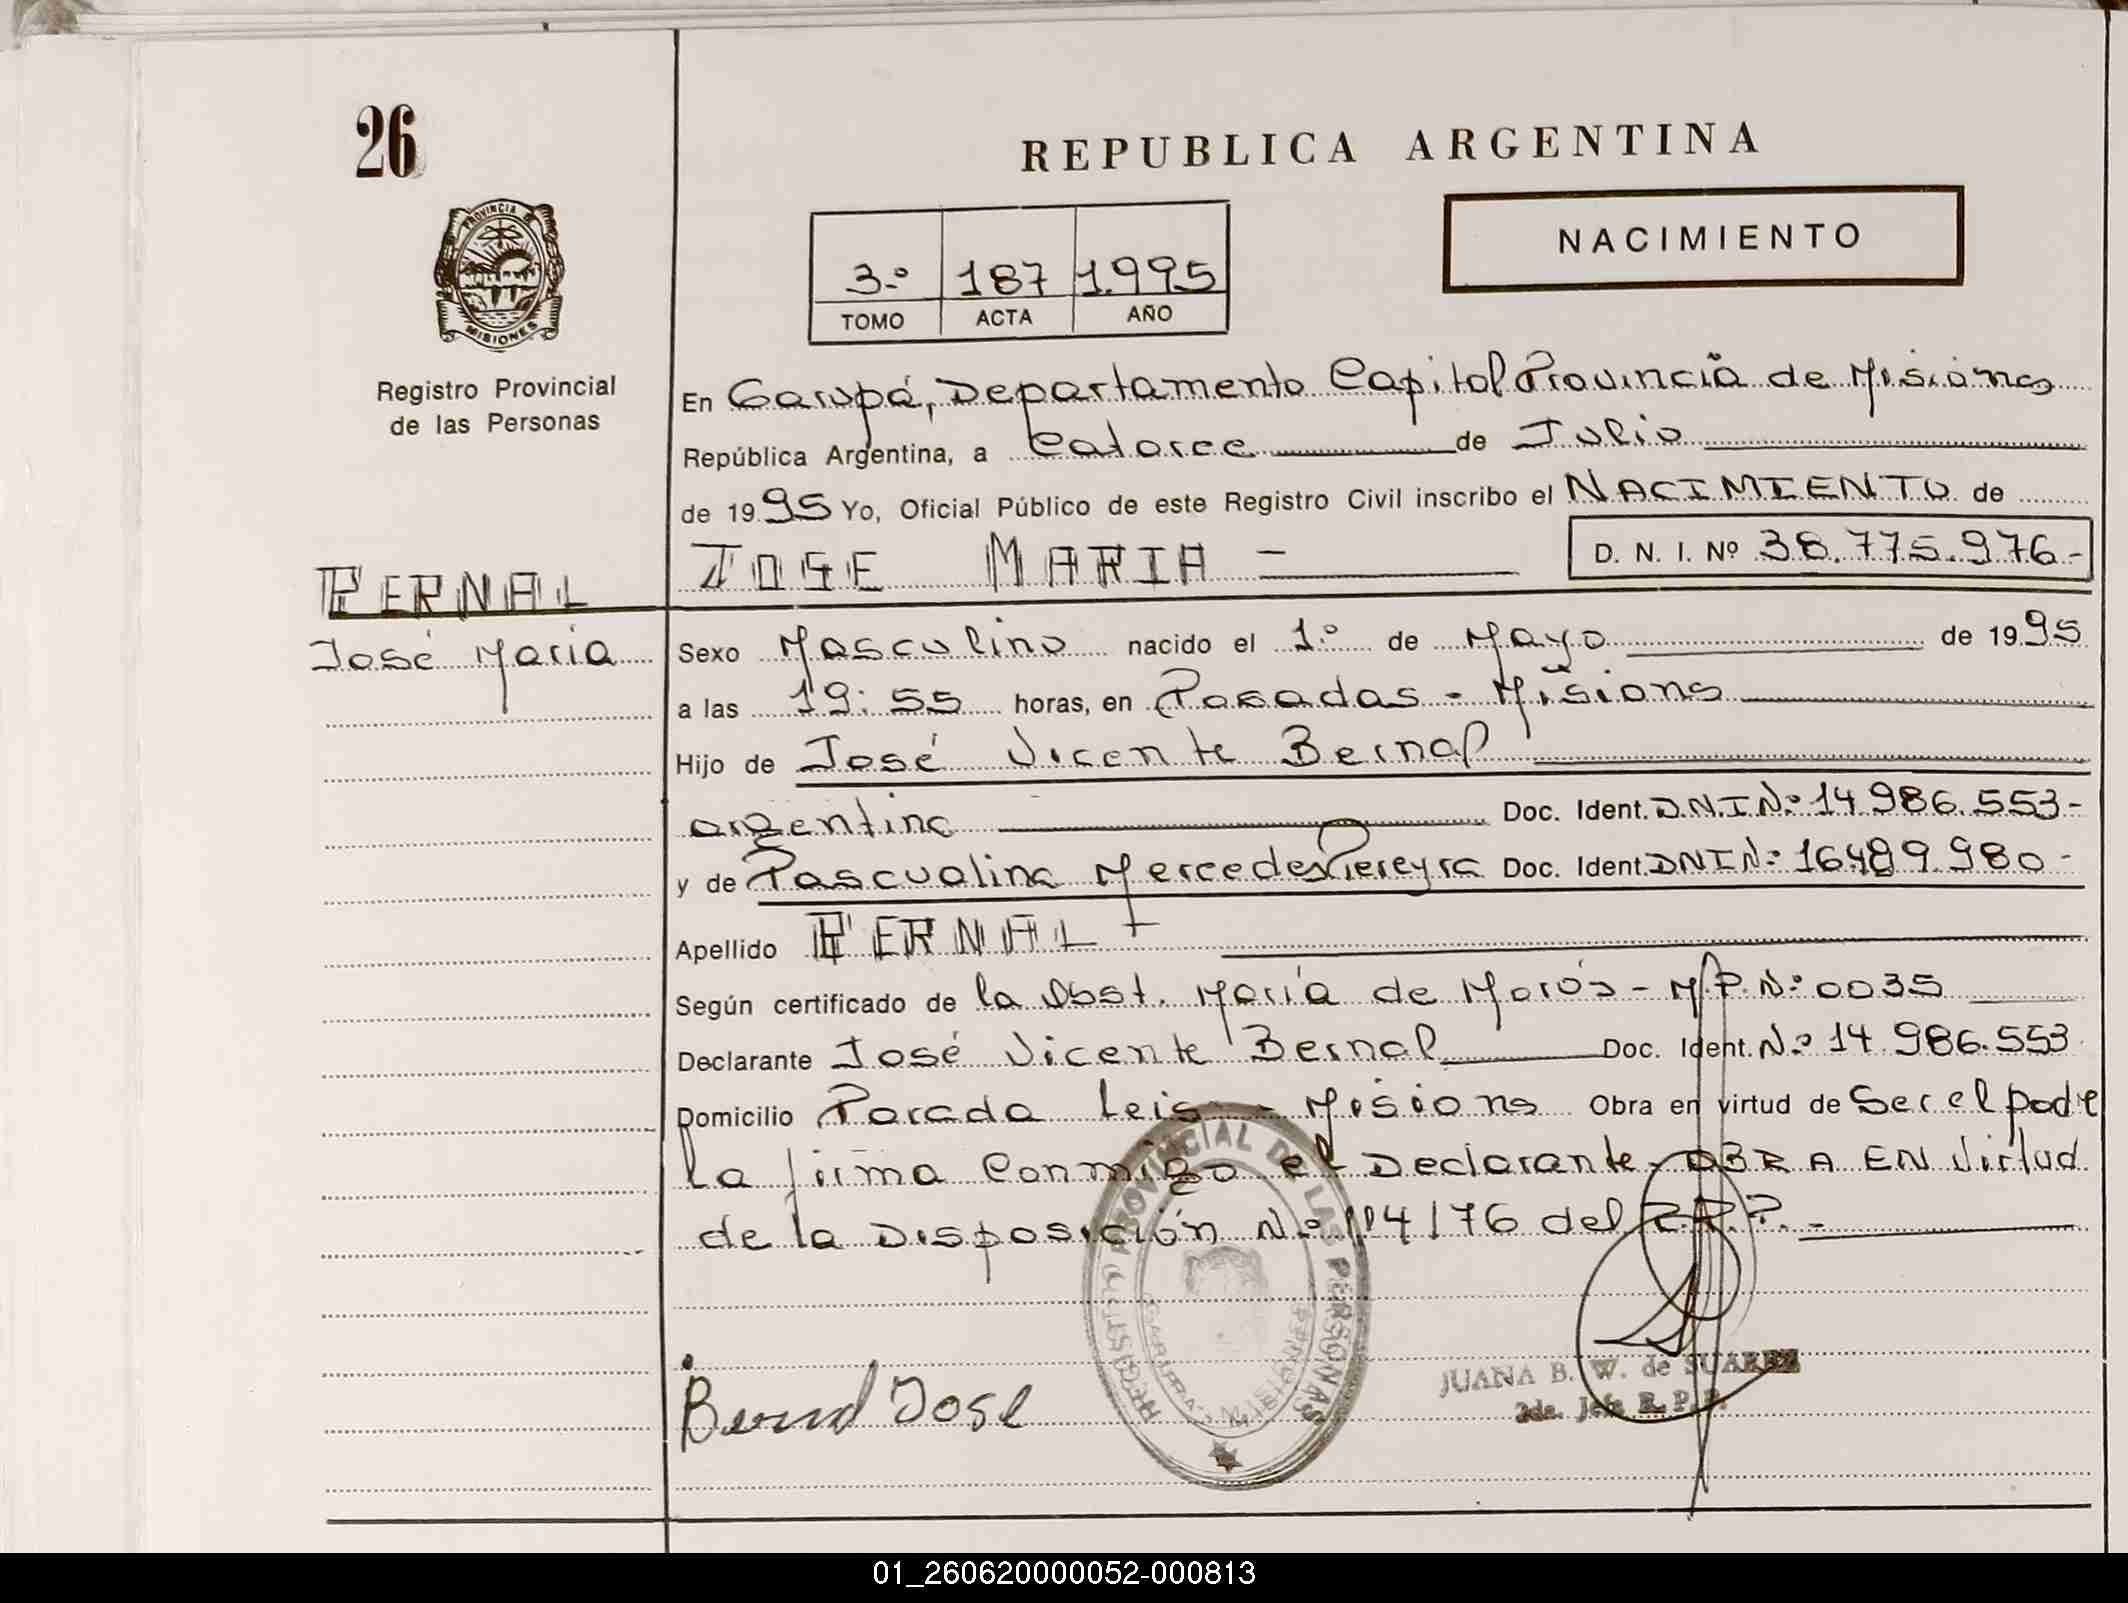 26
REPUBLICA ARGENTINA
PROVINCIA DE
MISIONES
NACIMIENTO
3.º 187 1.995
TOMO ACTA AÑO
Registro Provincial
de las Personas
En Garupá, Departamento Capital Provincia de Misiones
República Argentina, a Catorce de Julio
de 1995 Yo, Oficial Público de este Registro Civil inscribo el NACIMIENTO de
JOSE MARIA - D. N. I. Nº 38.775.976-
BERNAL
José María
Sexo Masculino nacido el 1.º de Mayo de 1995
a las 19:55 horas, en Posadas - Misions
Hijo de José Vicente Bernal
argentino Doc. Ident. D.N.I Nº 14.986.553-
y de Pascualina Mercedes Pereyra Doc. Ident. DNI Nº 16.489.980-
Apellido BERNAL
Según certificado de la Obst. María de Morós - M.P.Nº 0035
Declarante José Vicente Bernal Doc. Ident. Nº 14.986.553
Domicilio Parada Leis - Misions Obra en virtud de Ser el padre
La firma Conmigo el Declarante OBRA EN Virtud
de la Disposición Nº 114/76 del R.P.P. -
REGISTRO PROVINCIAL DE LAS PERSONAS
Bernal José
JUANA B. W. de SUAREZ
2da. Jefe R. P. P.
01_260620000052-000813